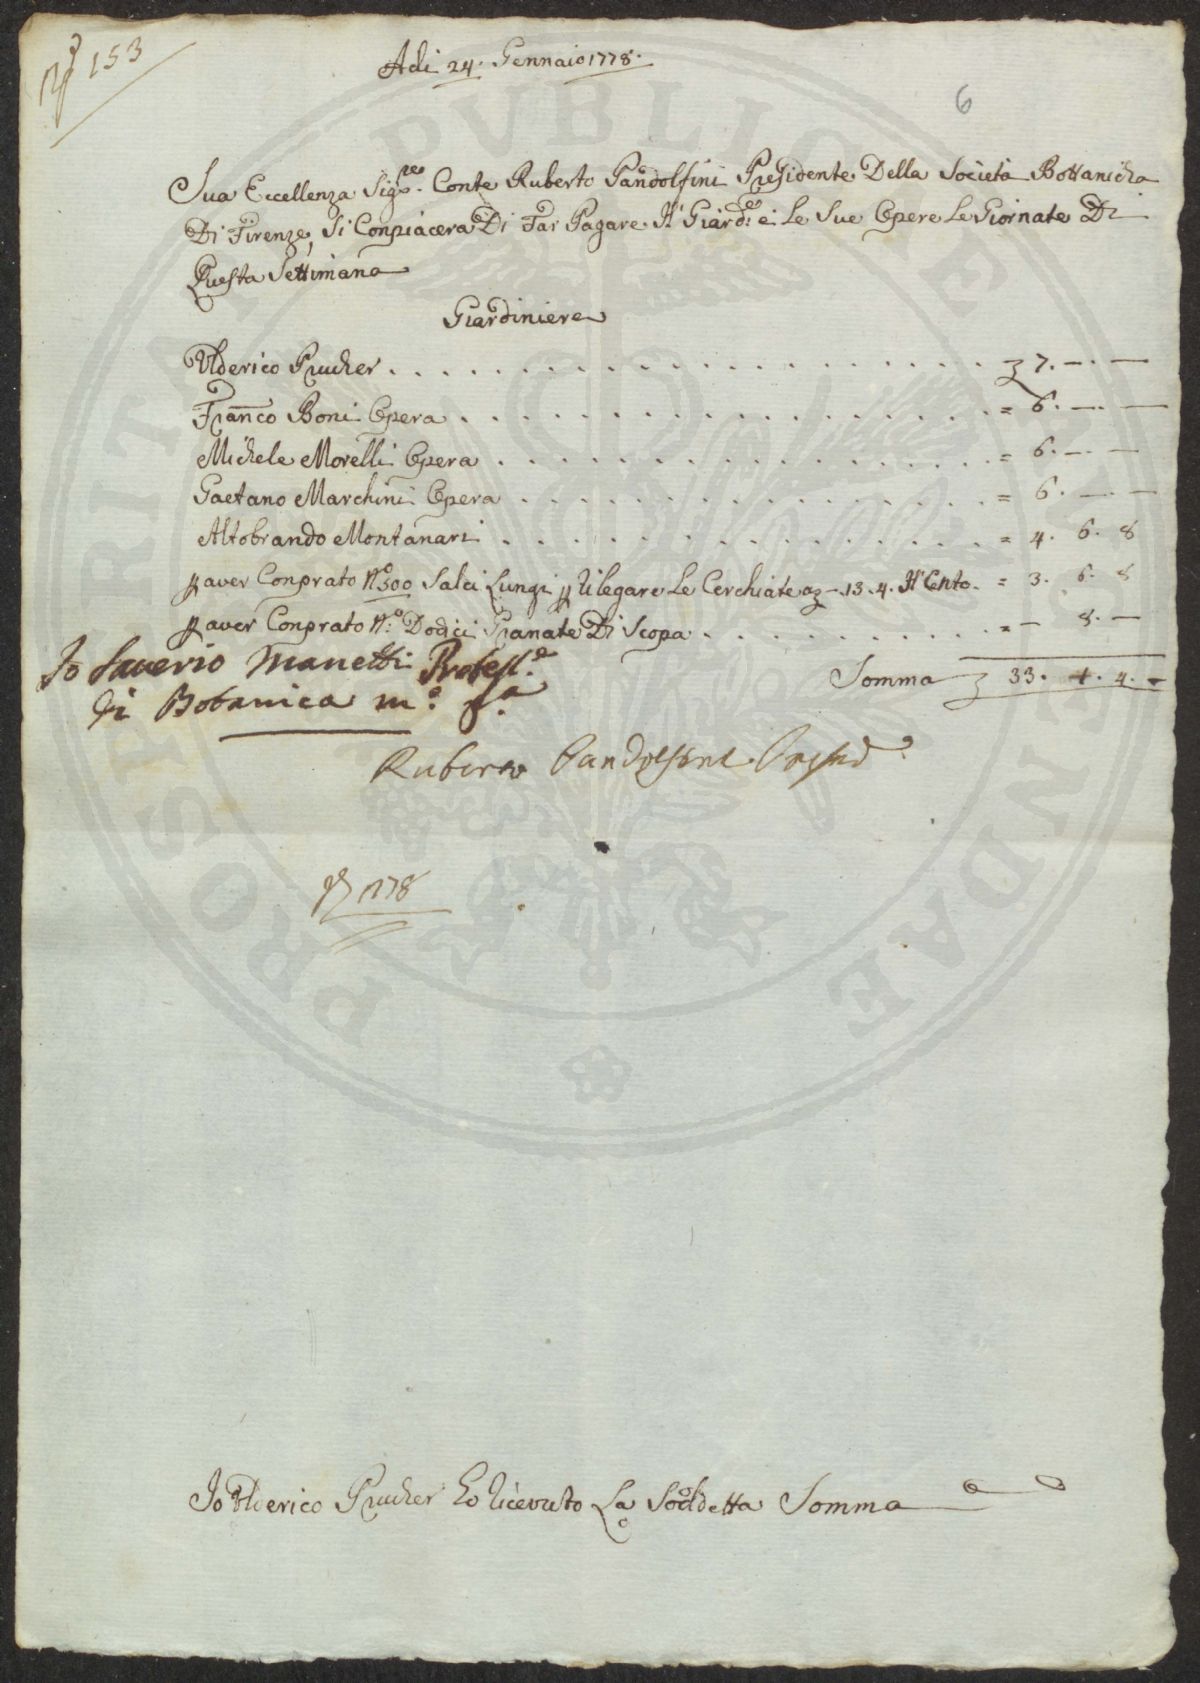 N.° 153
Adi 24. Gennaio 1778.
6
Sua Eccellenza Sig.re Conte Ruberto Pandolfini Presidente Della Società Bottanicha
Di Firenze, Si Conpiacera Di Far Pagare Al Giard.e e Le Sue Opere Le Giornate Di
Questa Settimana
Giardiniere
Ulderico Prucher . . . . . . . . . . . . . . . . . . . £ 7. — . —
Franco Boni Opera . . . . . . . . . . . . . . . . . = 6. — . —
Michele Morelli Opera . . . . . . . . . . . . . . . . = 6. — . —
Gaetano Marchini Opera . . . . . . . . . . . . . . . = 6. — . —
Altobrando Montanari . . . . . . . . . . . . . . . . = 4. 6. 8
p aver Conprato N.° 500 Salci Lungi p Rilegare Le Cerchiate a £ — .13.4. Il Cento. = 3. 6. 8
p aver Conprato N.° Dodici Granate Di Scopa . . . . . . . . . = — 8. —
Somma £ 33. 1. 4.
Io Saverio Manetti Profess.e
di Botanica m.° p.a
Ruberto Pandolfini Presid.e
1778
Io Ulderico Prucher Ho Ricevuto La Soddetta Somma
PROSPERITATI PUBLICAE AUGENDAE